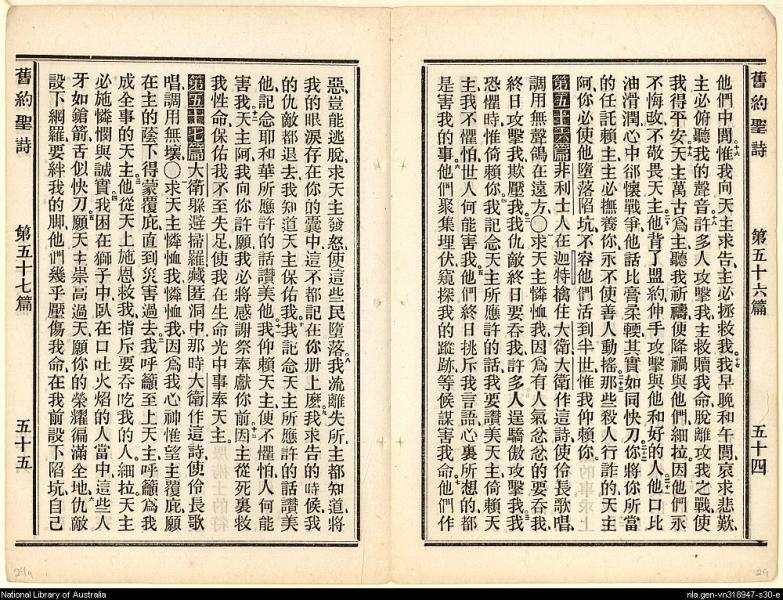 舊約聖詩 第五十六篇 五十四
他們中間惟我向天主求告主必拯救我我早晚和午間哀求悲歎
主必俯聽我的聲音許多人攻擊我主救贖我命脫離攻我之戰使
我得平安天主萬古為主聽我祈禱使降禍與他們細拉因他們永
不悔改不敬畏天主他背了盟約伸手攻擊與他和好的人他口比
油滑潤心中卻懷戰爭他話比膏柔輭其實如同快刀你將你所當
的任託賴主主必撫養你永不使善人動搖那些殺人行詐的天主
阿你必使他墮落陷坑不容他們活到半世惟我仰賴你
第五十六篇非利士人在迦特擒住大衛大衛作這詩使伶長歌唱
調用無聲鴿在遠方〇求天主憐恤我因為有人氣忿忿的要吞我
終日攻擊我欺壓我我仇敵終日要吞我許多人逞驕傲攻擊我我
恐懼時惟倚賴你我記念天主所應許的話我要讚美天主倚賴天
主我不懼怕世人何能害我他們終日挑斥我言語心裏所想的都
是害我的事他們聚集埋伏窺探我的蹤跡等候謀害我命他們作
惡豈能逃脫求天主發怒使這些民墮落我流離失所主都知道將
我的眼淚存在你的囊中這不都記在你册上麼我求告的時候我
的仇敵都退去我知道天主保佑我我記念天主所應許的話讚美
他記念耶和華所應許的話讚美他我仰賴天主使不懼怕人何能
害我天主阿我向你許願我必將感謝祭奉獻你前因主從死裏救
我性命保佑我不至失足使我在生命光中事奉天主
第五十七篇大衛躲避掃羅藏匿洞中那時大衛作這詩使伶長歌
唱調用無壞〇求天主憐恤我憐恤我因為我心神惟望主覆庇願
在主的蔭下得蒙覆庇直到災害過去我呼籲至上天主呼籲為我
成全事的天主他從天上施恩救我指斥要吞吃我的人細拉天主
必施憐憫與誠實我困在獅子中臥在口吐火焰的人當中這些人
牙如鎗箭舌似快刀願天主崇高過天願你的榮耀徧滿全地仇敵
設下網羅要絆我的脚他們幾乎壓傷我命在我前設下陷坑自己
舊約聖詩 第五十七篇 五十五
29a
29
National Library of Australia
nla.gen-vn318947-s30-e